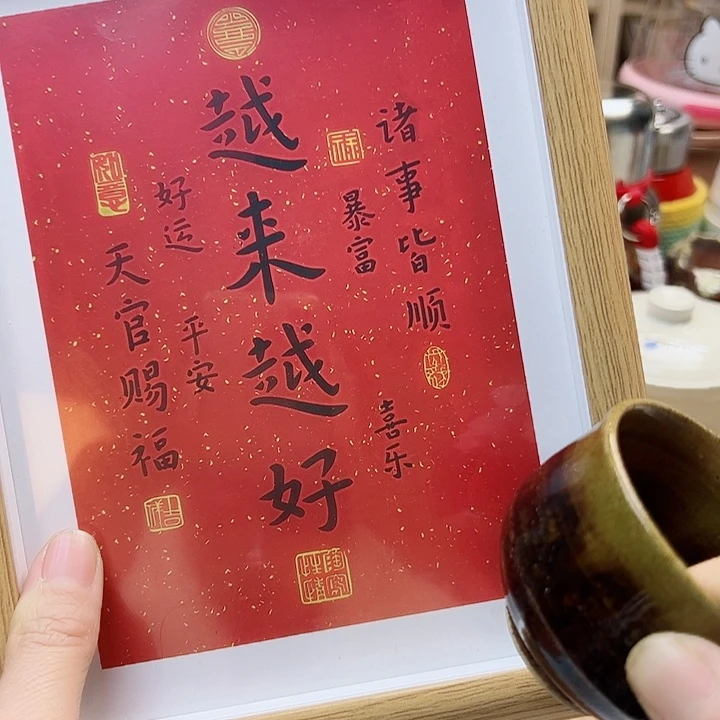 诸事皆顺
暴富
喜乐
越来越好
好运
平安
天官赐福